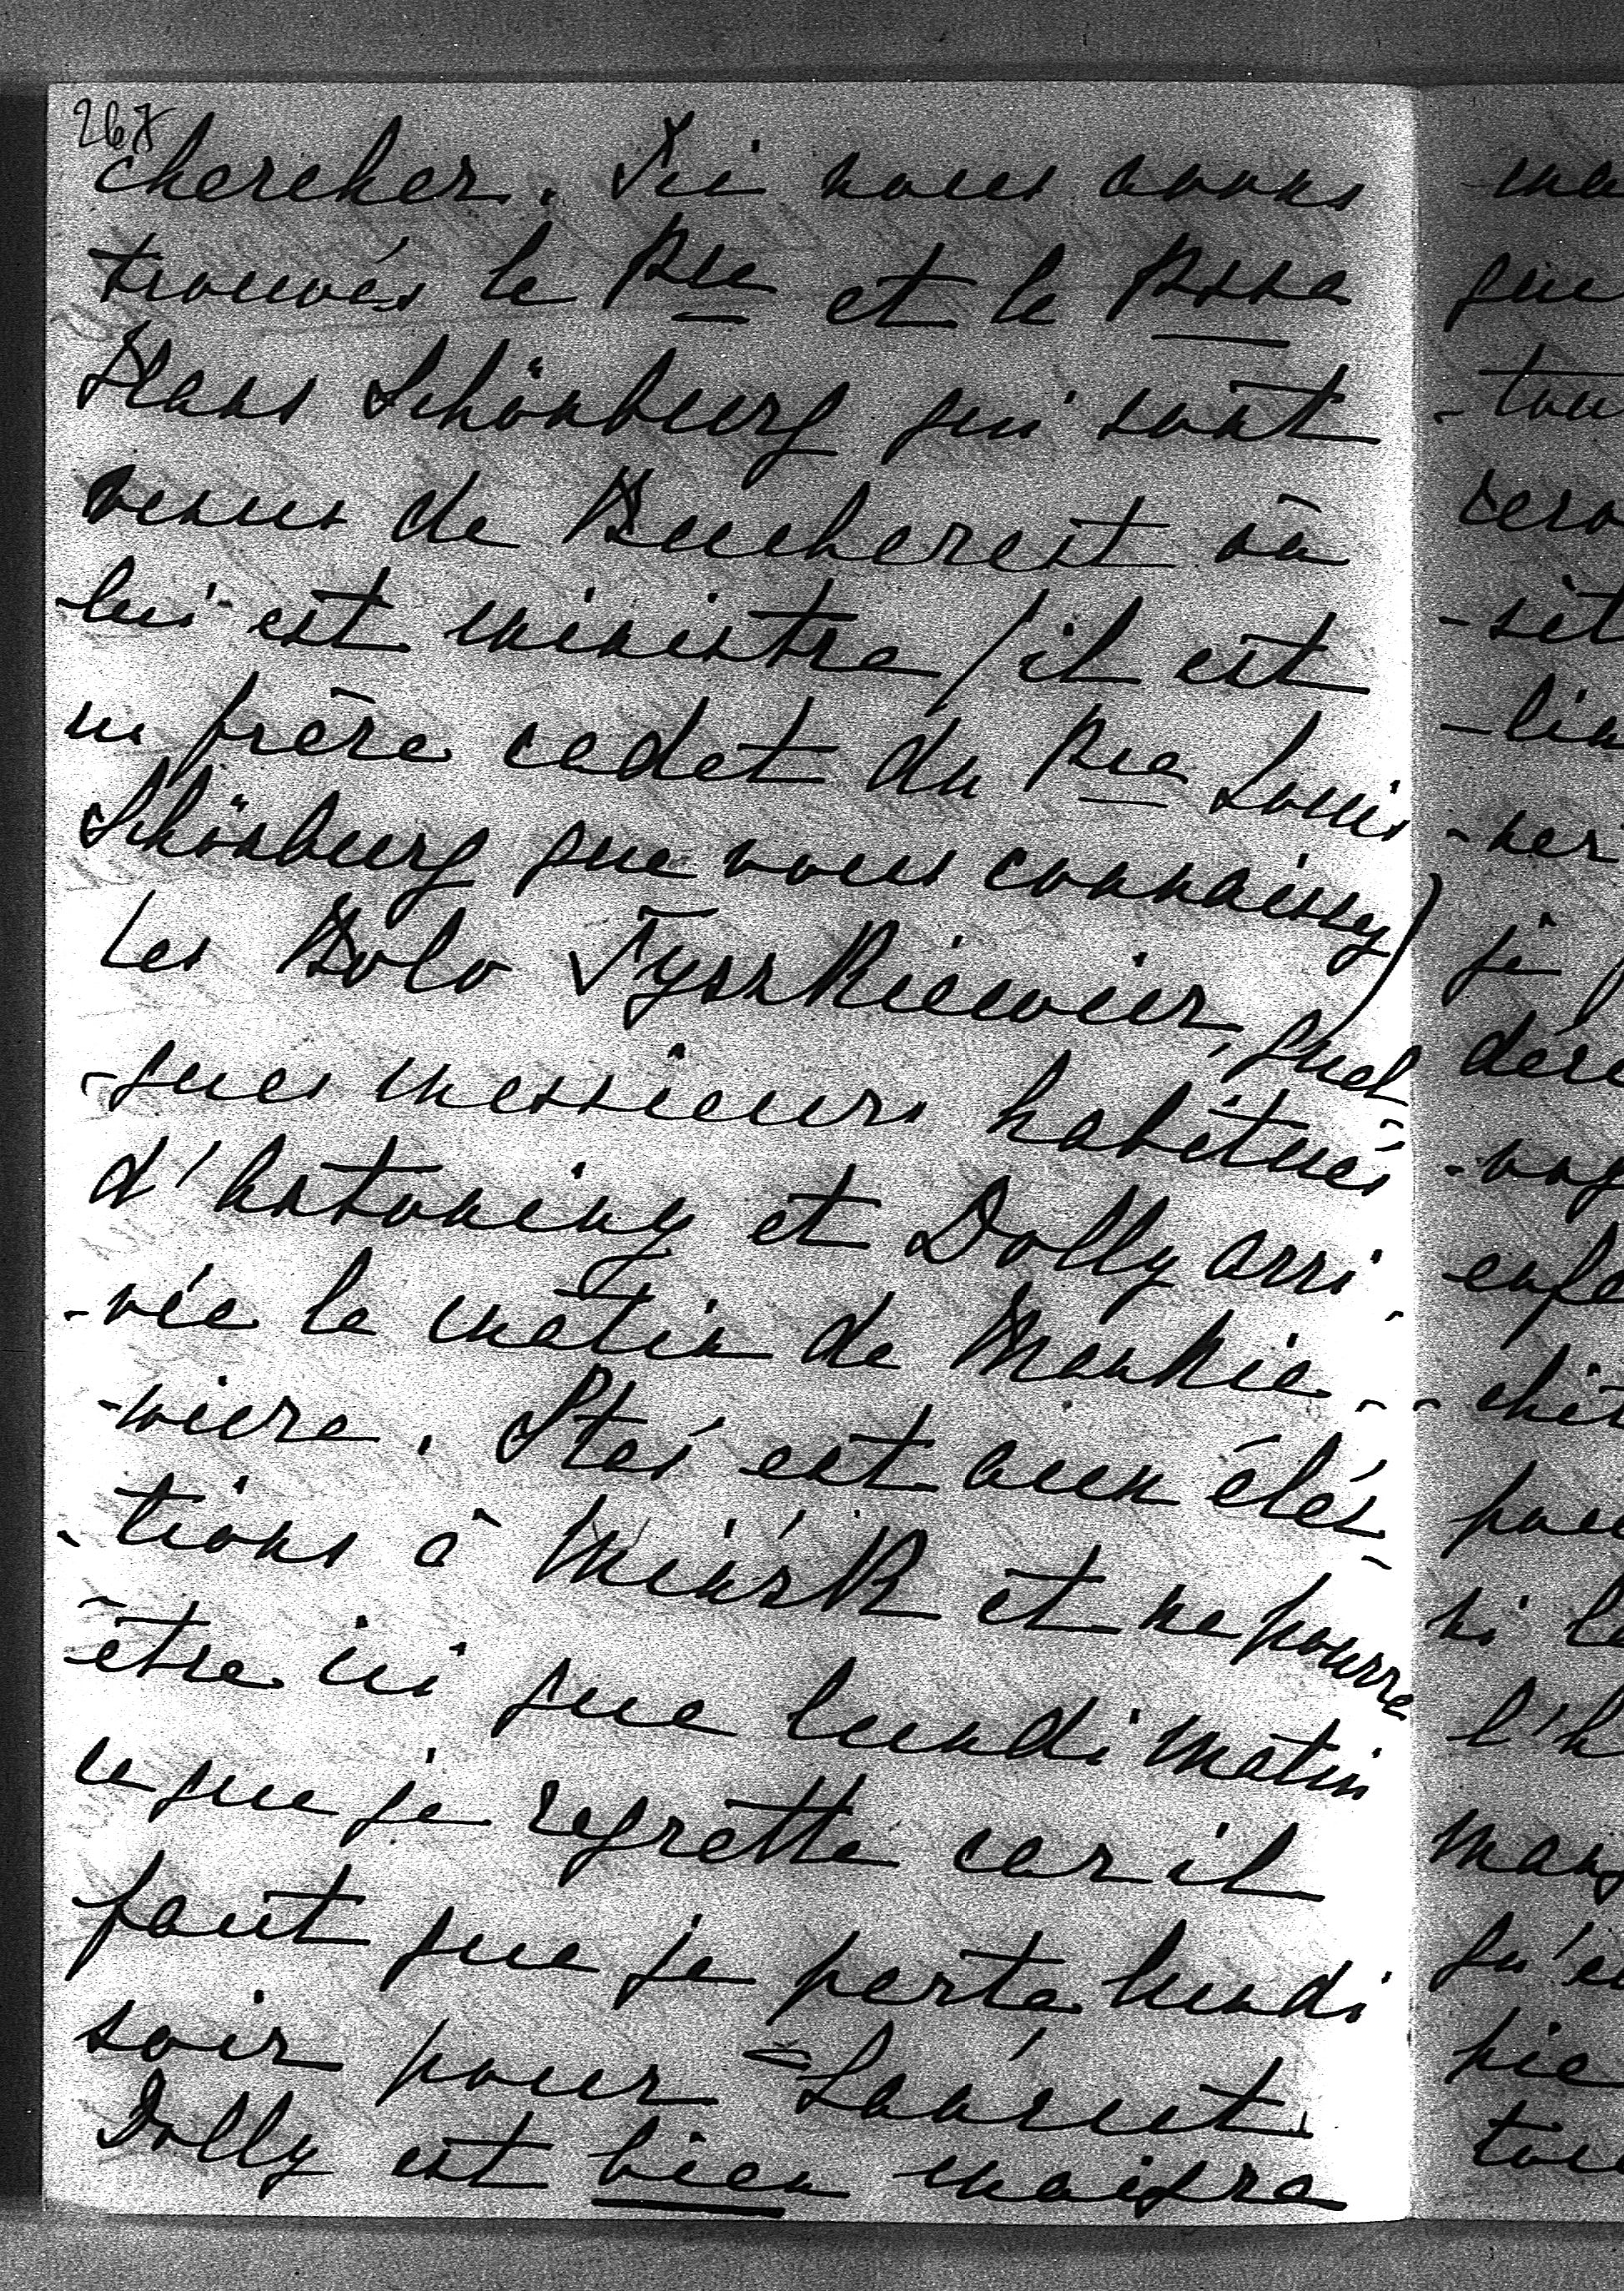 267
chercher. Ici nous avons
trouvés le Pce et la Psse
Hans Schönburg qui sont
venus de Bucherest où
lui est ministre (il est
un frère cadet du Pce Louis
Schönburg que vous connaissez)
Les Bolo Tyszkiewicz, quel-
-ques messieurs habitués
d'Antoniny et Dolly arri-
-vée le matin de Mankie-
-wicze. Staś est aux élec-
-tions à Mińsk et ne pourra
être ici que lundi matin
ce que je regrette car il
faut que je parte lundi
soir pour =Łańcut.
Dolly est bien maigre